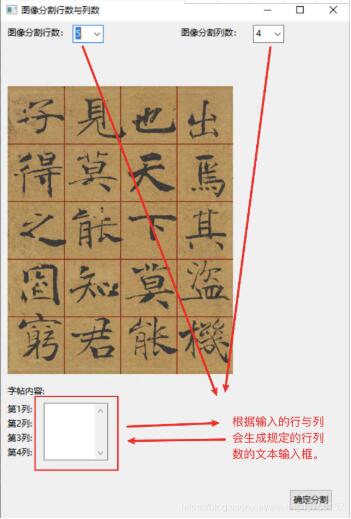 图像分割行数与列数
图像分割行数： 5
图像分割列数： 4
出焉其盜機
也天下莫能
見莫能知君
子得之固窮
字帖内容:
第1列:
第2列:
第3列:
第4列:
根据输入的行与列
会生成规定的行列
数的文本输入框。
确定分割